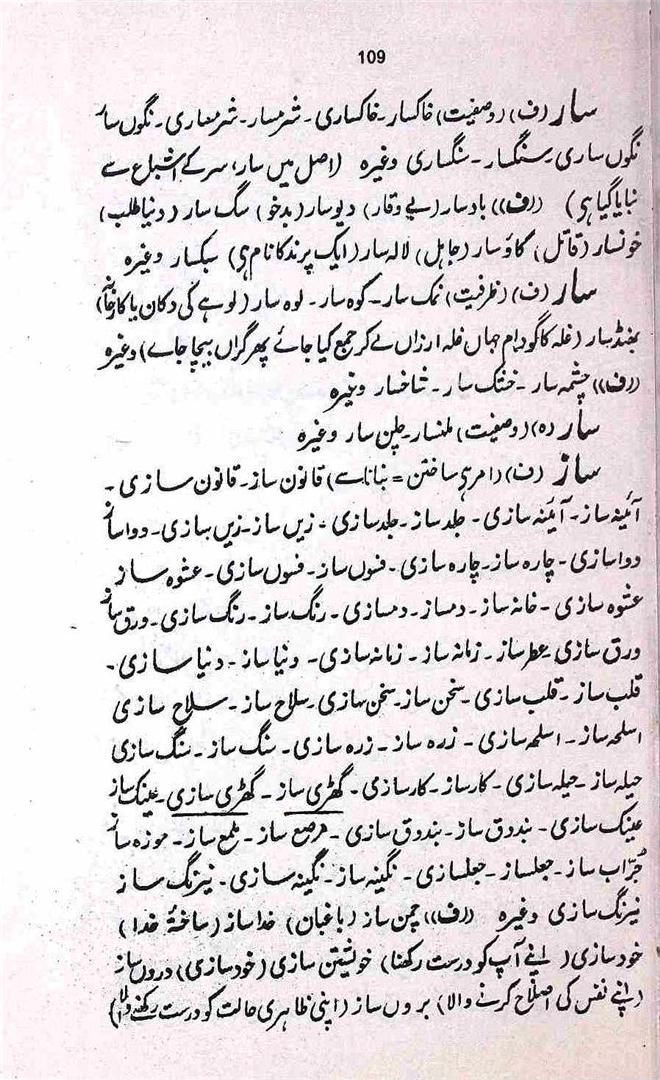 109
سار (ف) (وصفیت) خاکسار۔ خاکساری۔ شرمسار۔ شرمساری۔ نگوں سار
نگوں ساری۔ سنگسار۔ سنگساری وغیرہ (اصل میں سار، سر کے اشباع سے
بنایا گیا ہی) ((ف)) بادسار (بے وقار) دیوسار (بدخو) سگ سار (دنیا طلب)
خونسار (قاتل) گاؤسار (جاہل) لالہ سار (ایک پرند کا نام ہی) سبکسار وغیرہ
سار (ف) (ظرفیت) نمک سار۔ کوہ سار۔ لوہ سار (لوہے کی دکان یا کارخانہ)
بھنڈسار (غلہ کا گودام جہاں غلہ ارزاں لے کر جمع کیا جائے پھر گراں بیچا جاے) وغیرہ
((ف)) چشمہ سار۔ خشک سار۔ شاخسار وغیرہ
سار (ہ) (وصفیت) ملنسار۔ چلن سار وغیرہ
ساز (ف) (امر ہی ساختن = بنانا سے) قانون ساز۔ قانون سازی۔
آئینہ ساز۔ آئینہ سازی۔ جلد ساز۔ جلد سازی۔ زیں ساز۔ زیں سازی۔ دوا ساز
دوا سازی۔ چارہ ساز۔ چارہ سازی۔ فسوں ساز۔ فسوں سازی۔ عشوہ ساز
عشوہ سازی۔ خانہ ساز۔ دمساز۔ دمسازی۔ رنگ ساز۔ رنگ سازی۔ ورق ساز
ورق سازی۔ عطر ساز۔ زمانہ ساز۔ زمانہ سازی۔ دنیا ساز۔ دنیا سازی۔
قلب ساز۔ قلب سازی۔ سخن ساز۔ سخن سازی۔ سلاح ساز۔ سلاح سازی
اسلحہ ساز۔ اسلحہ سازی۔ زرہ ساز۔ زرہ سازی۔ سنگ ساز۔ سنگ سازی
حیلہ ساز۔ حیلہ سازی۔ کارساز۔ کارسازی۔ گھڑی ساز۔ گھڑی سازی۔ عینک ساز
عینک سازی۔ بندوق ساز۔ بندوق سازی۔ مرصع ساز۔ ملمع ساز۔ موزہ ساز
جُرّاب ساز۔ جعلساز۔ جعلسازی۔ نگینہ ساز۔ نگینہ سازی۔ نیرنگ ساز
نیرنگ سازی وغیرہ ((ف)) چمن ساز (باغبان) خدا ساز (ساختۂ خدا)
خود سازی (اپنے آپ کو درست رکھنا) خویشتن سازی (خود سازی) دروں ساز
(اپنے نفس کی اصلاح کرنے والا) بروں ساز (اپنی ظاہری حالت کو درست رکھنے والا)